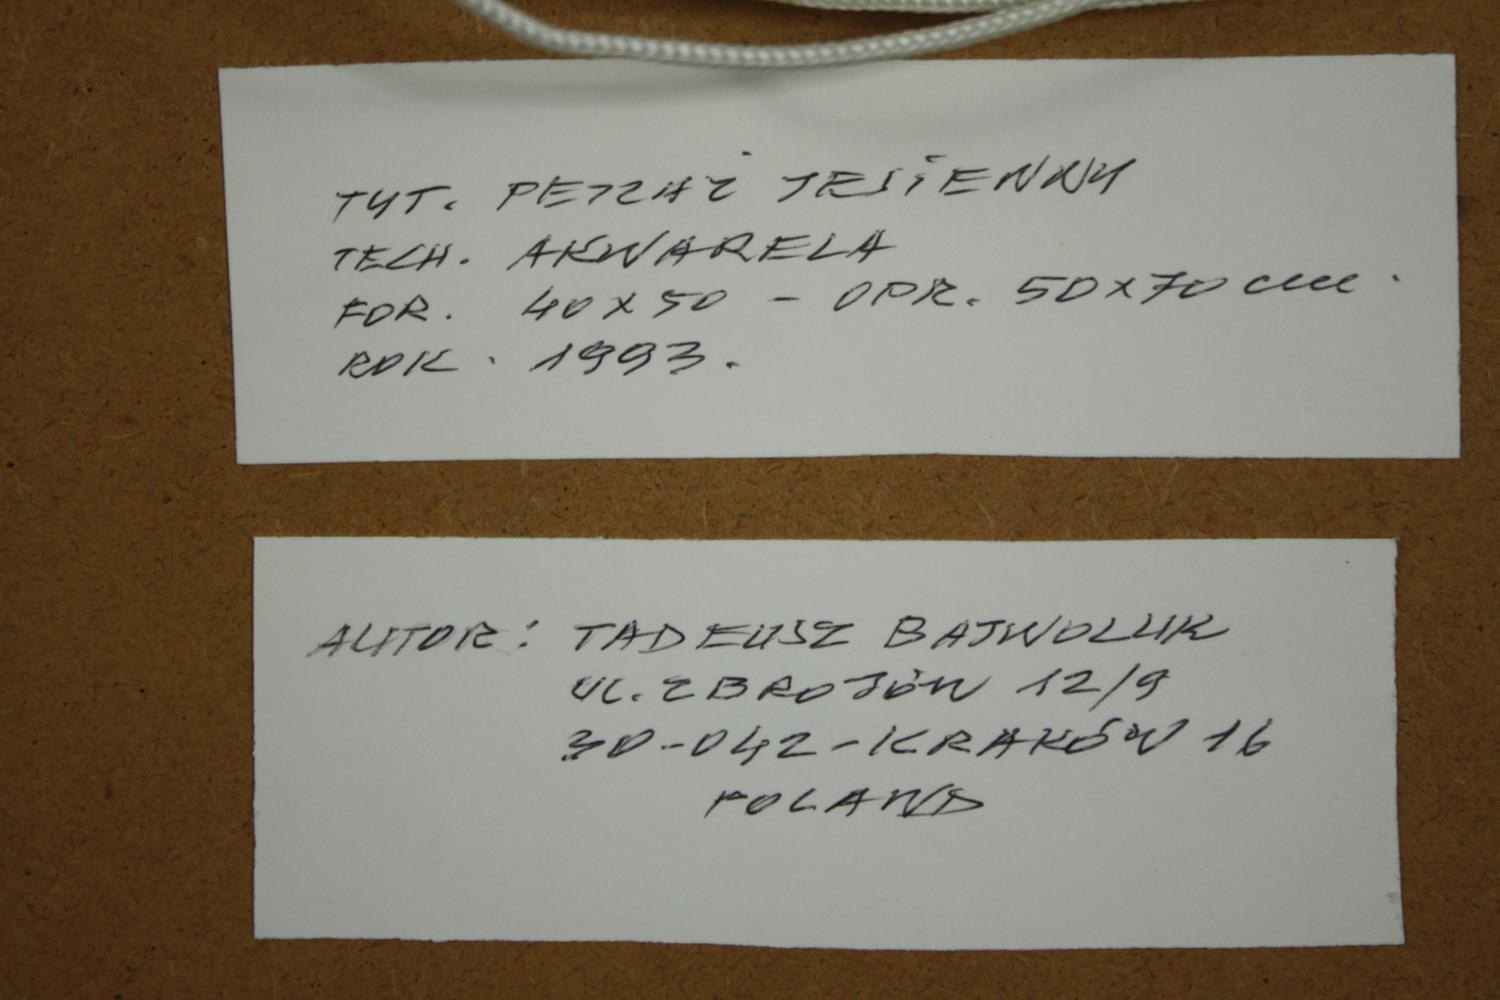 TYT. PEJZAŻ JESIENNY
TECH. AKWARELA
FOR. 40 x 50 - OPR. 50x70 cm.
ROK. 1993.
AUTOR: TADEUSZ BAJWOLUK
UL. ZBROJÓW 12/9
30-042-KRAKÓW 16
POLAND